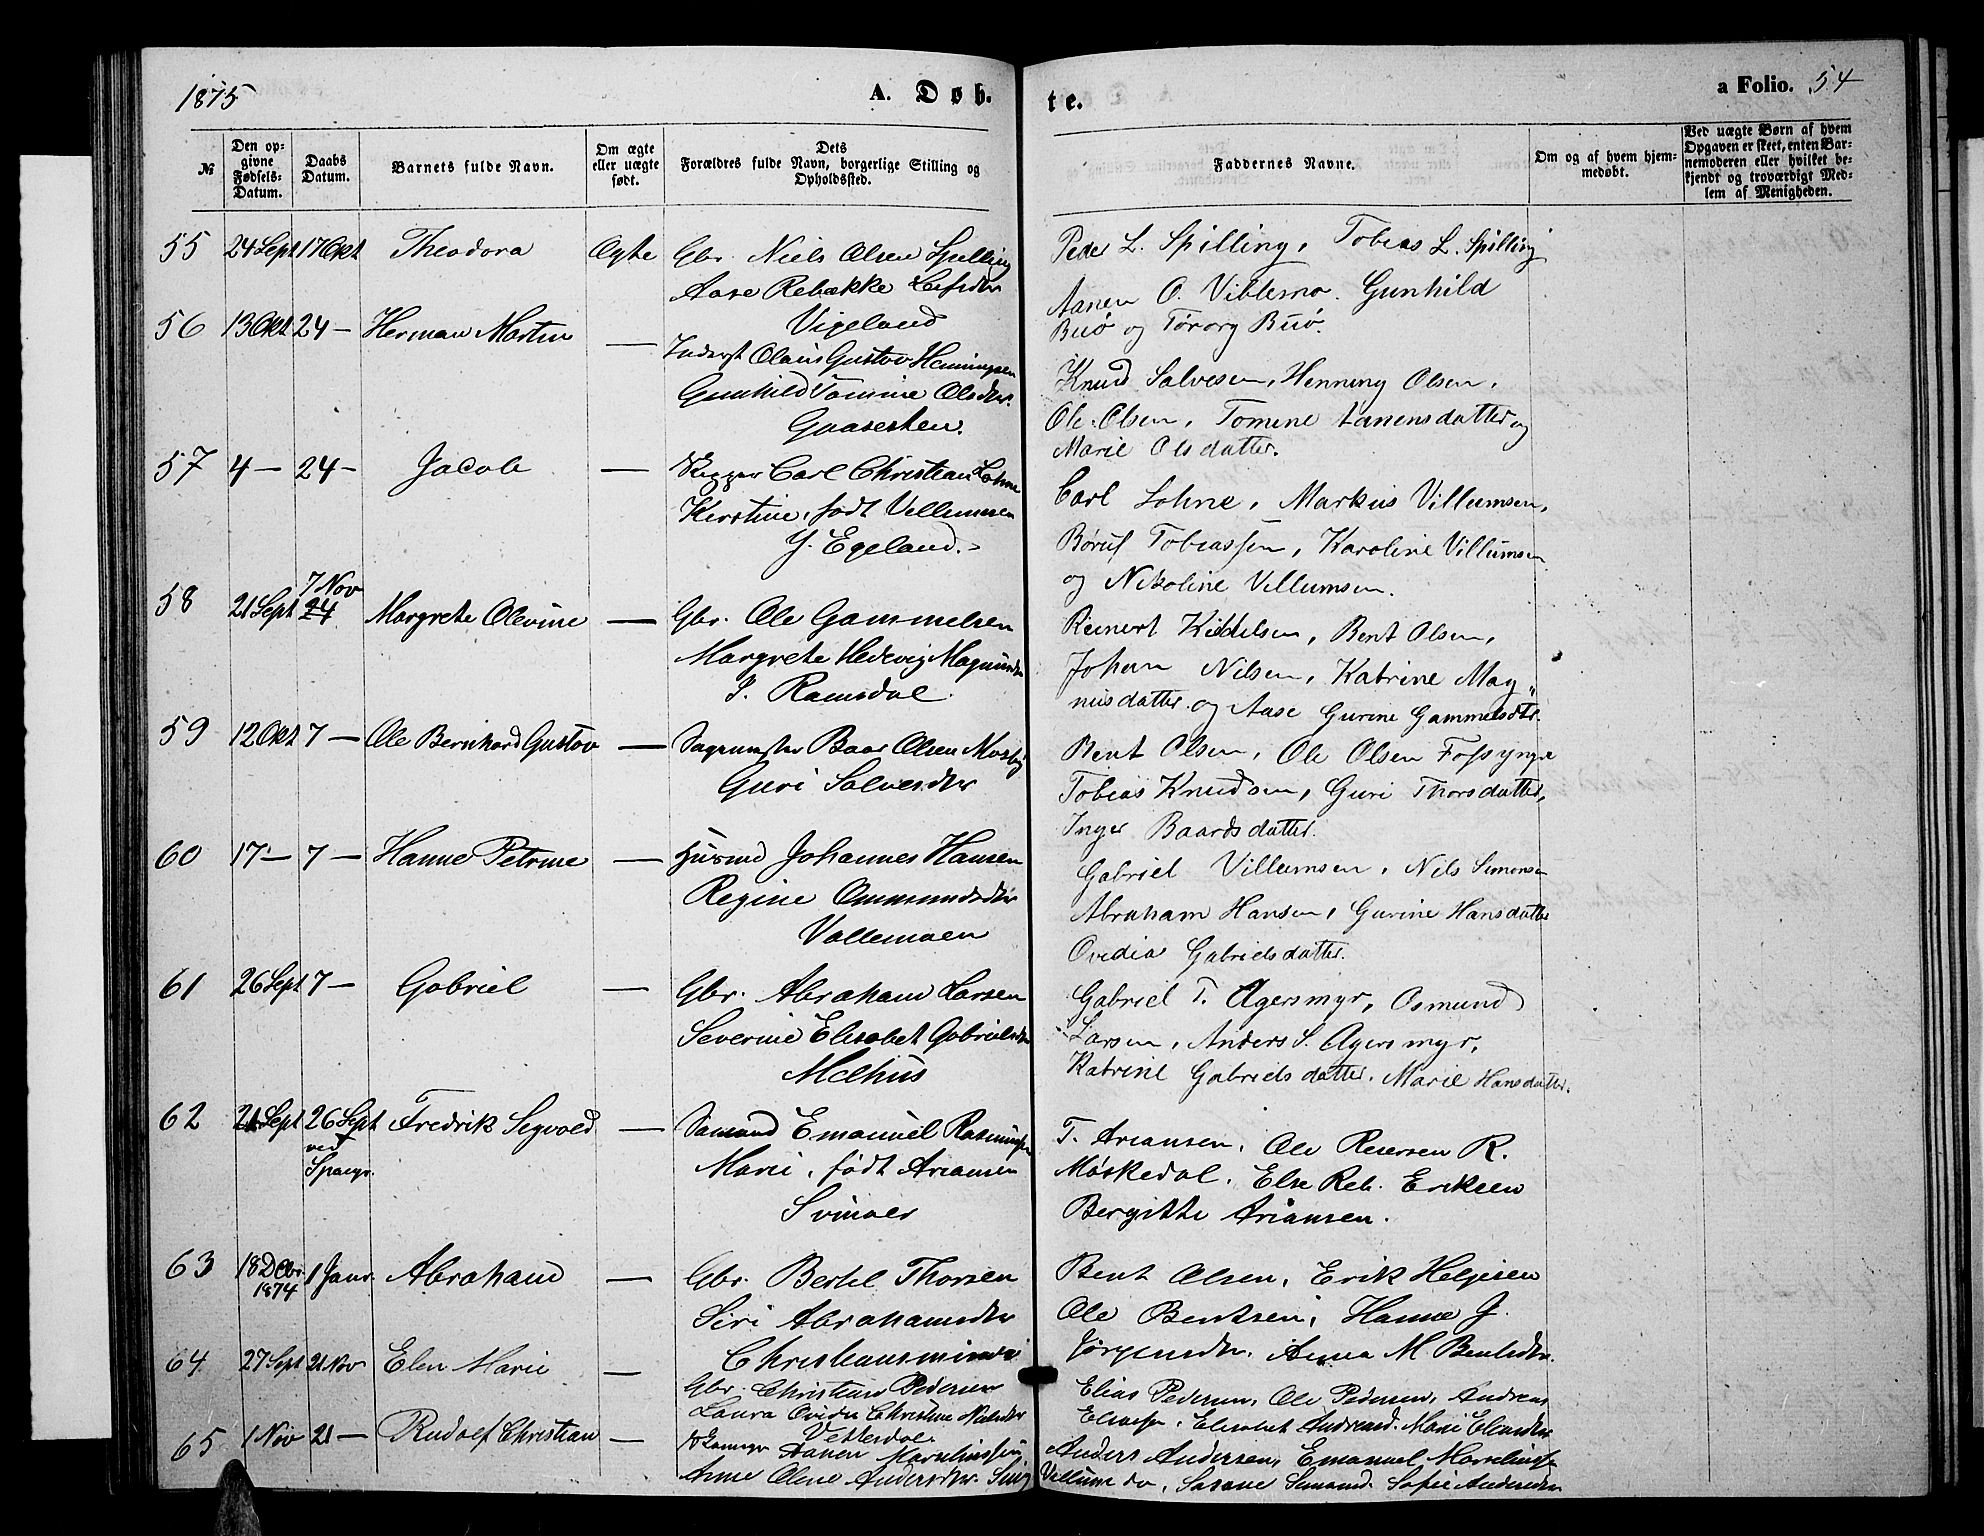 1875 A. Døb. te. a Folio. 54
№
Den op-
givne
Fødsels-
Datum.
Daabs
Datum.
Barnets fulde Navn.
Om ægte
eller uægte
født.
Dets
Forældres fulde Navn, borgerlige Stilling og
Opholdssted.
Faddernes Navne.
Om og af hvem hjem-
medøbt.
Ved uægte Børn af hvem
Opgaven er skeet, enten Bar-
nemoderen eller hvilket be-
kjendt og troværdigt Med-
lem af Menigheden.
55 24 Sept 17 Okt Theodora Ægte Gbr. Niels Olsen Spilling
Aase Rebække
Vigeland
Peder L. Spilling, Tobias L. Spilling
Aanen O. Viblemo. Gunhild
Buø og Buø.
56 13 Okt 24 — Herman Martin — Inderst Olaus Gustav Henningsen
Gunhild Tomine Olsdtr.
Gaasesten.
Knud Salvesen, Henning Olsen,
Ole Olsen, Tomine Aanensdatter og
Marie Olsdatter.
57 4 — 24 — Jacob — Carl Christian Lohne
Kirstine, født Villumsen
Y. Egeland.
Carl Lohne, Markus Villumsen,
Børuf Tobiassen, Karoline Villumsen
og Nikoline Villumsen.
58 21 Sept 7 Nov
24 Margrete Olevine — Gbr. Ole Gammelsen
Margrete Hedevig Magnusdtr
S. Ramsdal.
Reinert Kiddelsen, Bent Olsen,
Johan Nilsen, Katrine Mag"
nusdatter og Aase Gurine Gammelsdtr.
59 12 Okt 7 — Ole Bernhard Gustav — Sagmester Baar Olsen Mosby
Guri Salvesdtr
Bent Olsen, Ole Olsen
Tobias Knudsen, Guri Thorsdatter,
Inger Baardsdatter.
60 17 — 7 — Hanne Petrine — Husmd Johannes Hansen
Regine Ommundsdtr
Vollemoen
Gabriel Villumsen, Nils Simonsen
Abraham Hansen, Gurine Hansdatter
Ovedia Gabrielsdatter.
61 26 Sept 7 — Gabriel — Gbr. Abraham Larsen
Severine Elisabet Gabrielsdtr
Melhus
Gabriel T. Agersmyr, Osmund
Larsen, Anders S. Agersmyr,
Katrine Gabrielsdatter. Marie Hansdatter.
62 21 Sept 26 Sept Fredrik Segvald — Sømand Emanuel Rasmussen
ved
Spangr.
Marie, født Ariansen
Svinoer
T. Ariansen, Ole Reiersen R.
Møskedal. Else Reb. Eriksen
Bergitte Ariansen.
63 18 Debr. 1 Janr. Abraham — Gbr. Bertel Thorsen
1874
Siri Abrahamsdtr
Christiansminde
Bent Olsen, Erik Helgesen
Ole Bentsen, Hanne J.
Jørgensdtr. Anna M Bentsdtr.
64 27 Sept 21 Nov Elen Marie — Gbr. Christian Pedersen
Laura Ovidie Christine Nielsdtr
Vetterdal.
Elias Pedersen, Ole Pedersen, Andreas
Eliassn, Elisabet Andreasd. Marie
65 1 Nov 21 — Rudolf Christian — Aanen Marseliussen
Anne Oline Andersdtr.
Anders Andersen, Emanuel Marseliussn
Villum do, Sofie Andersdtr